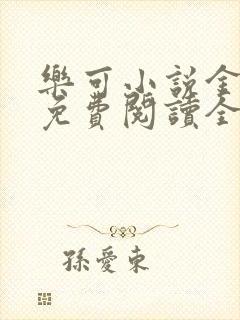 樂可小说全
免費閱讀全
孫愛東